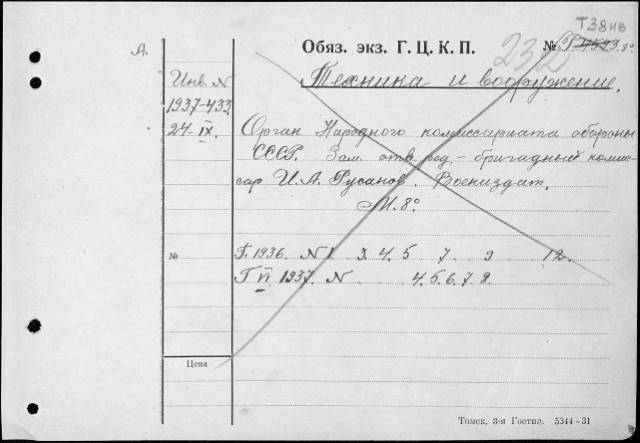 Т38нв
А.
Обяз. экз. Г. Ц. К. П.
232
№ 8º
Инв. N
1937-433
24-IX.
Техника и вооружение.
Орган Народного комиссариата обороны
СССР. Зам. отв. ред. - бригадный комис-
сар И. А. Русанов. Воениздат.
М. 8º
№
Г. 1936. N 1 3. 4. 5 7. 9 12.
Г VI 1937. N 4. 5. 6. 7. 8.
Цена
Томск, 3-я Гостип. 5344-31